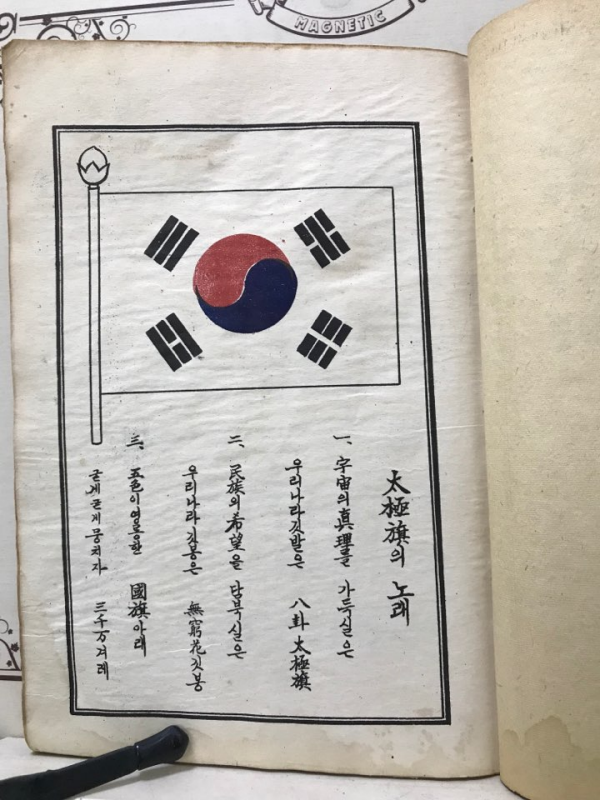 MAGNETIC
太極旗의 노래
一、宇宙의 眞理를 가득실은
우리나라깃발은 八卦 太極旗
二、民族의 希望을 담북실은
우리나라깃봉은 無窮花깃봉
三、五色이영롱한 國旗아래
굳게굳게뭉치자 三千万겨레